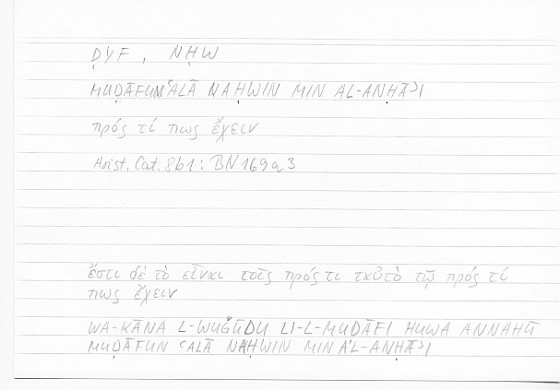 ḌYF, NḤW
MUḌĀFUN ʿALĀ NAḤWIN MIN AL-ANḤĀʾI
πρός τί πως ἔχειν
Arist. Cat. 8b1: BN 169a3
ἔστι δὲ τὸ εἶναι τοῖς πρός τι ταὐτὸ τῷ πρός τί
πως ἔχειν
WA-KĀNA L-WUǦŪDU LI-L-MUḌĀFI HUWA ANNAHŪ
MUḌĀFUN ʿALĀ NAḤWIN MINA L-ANḤĀʾI